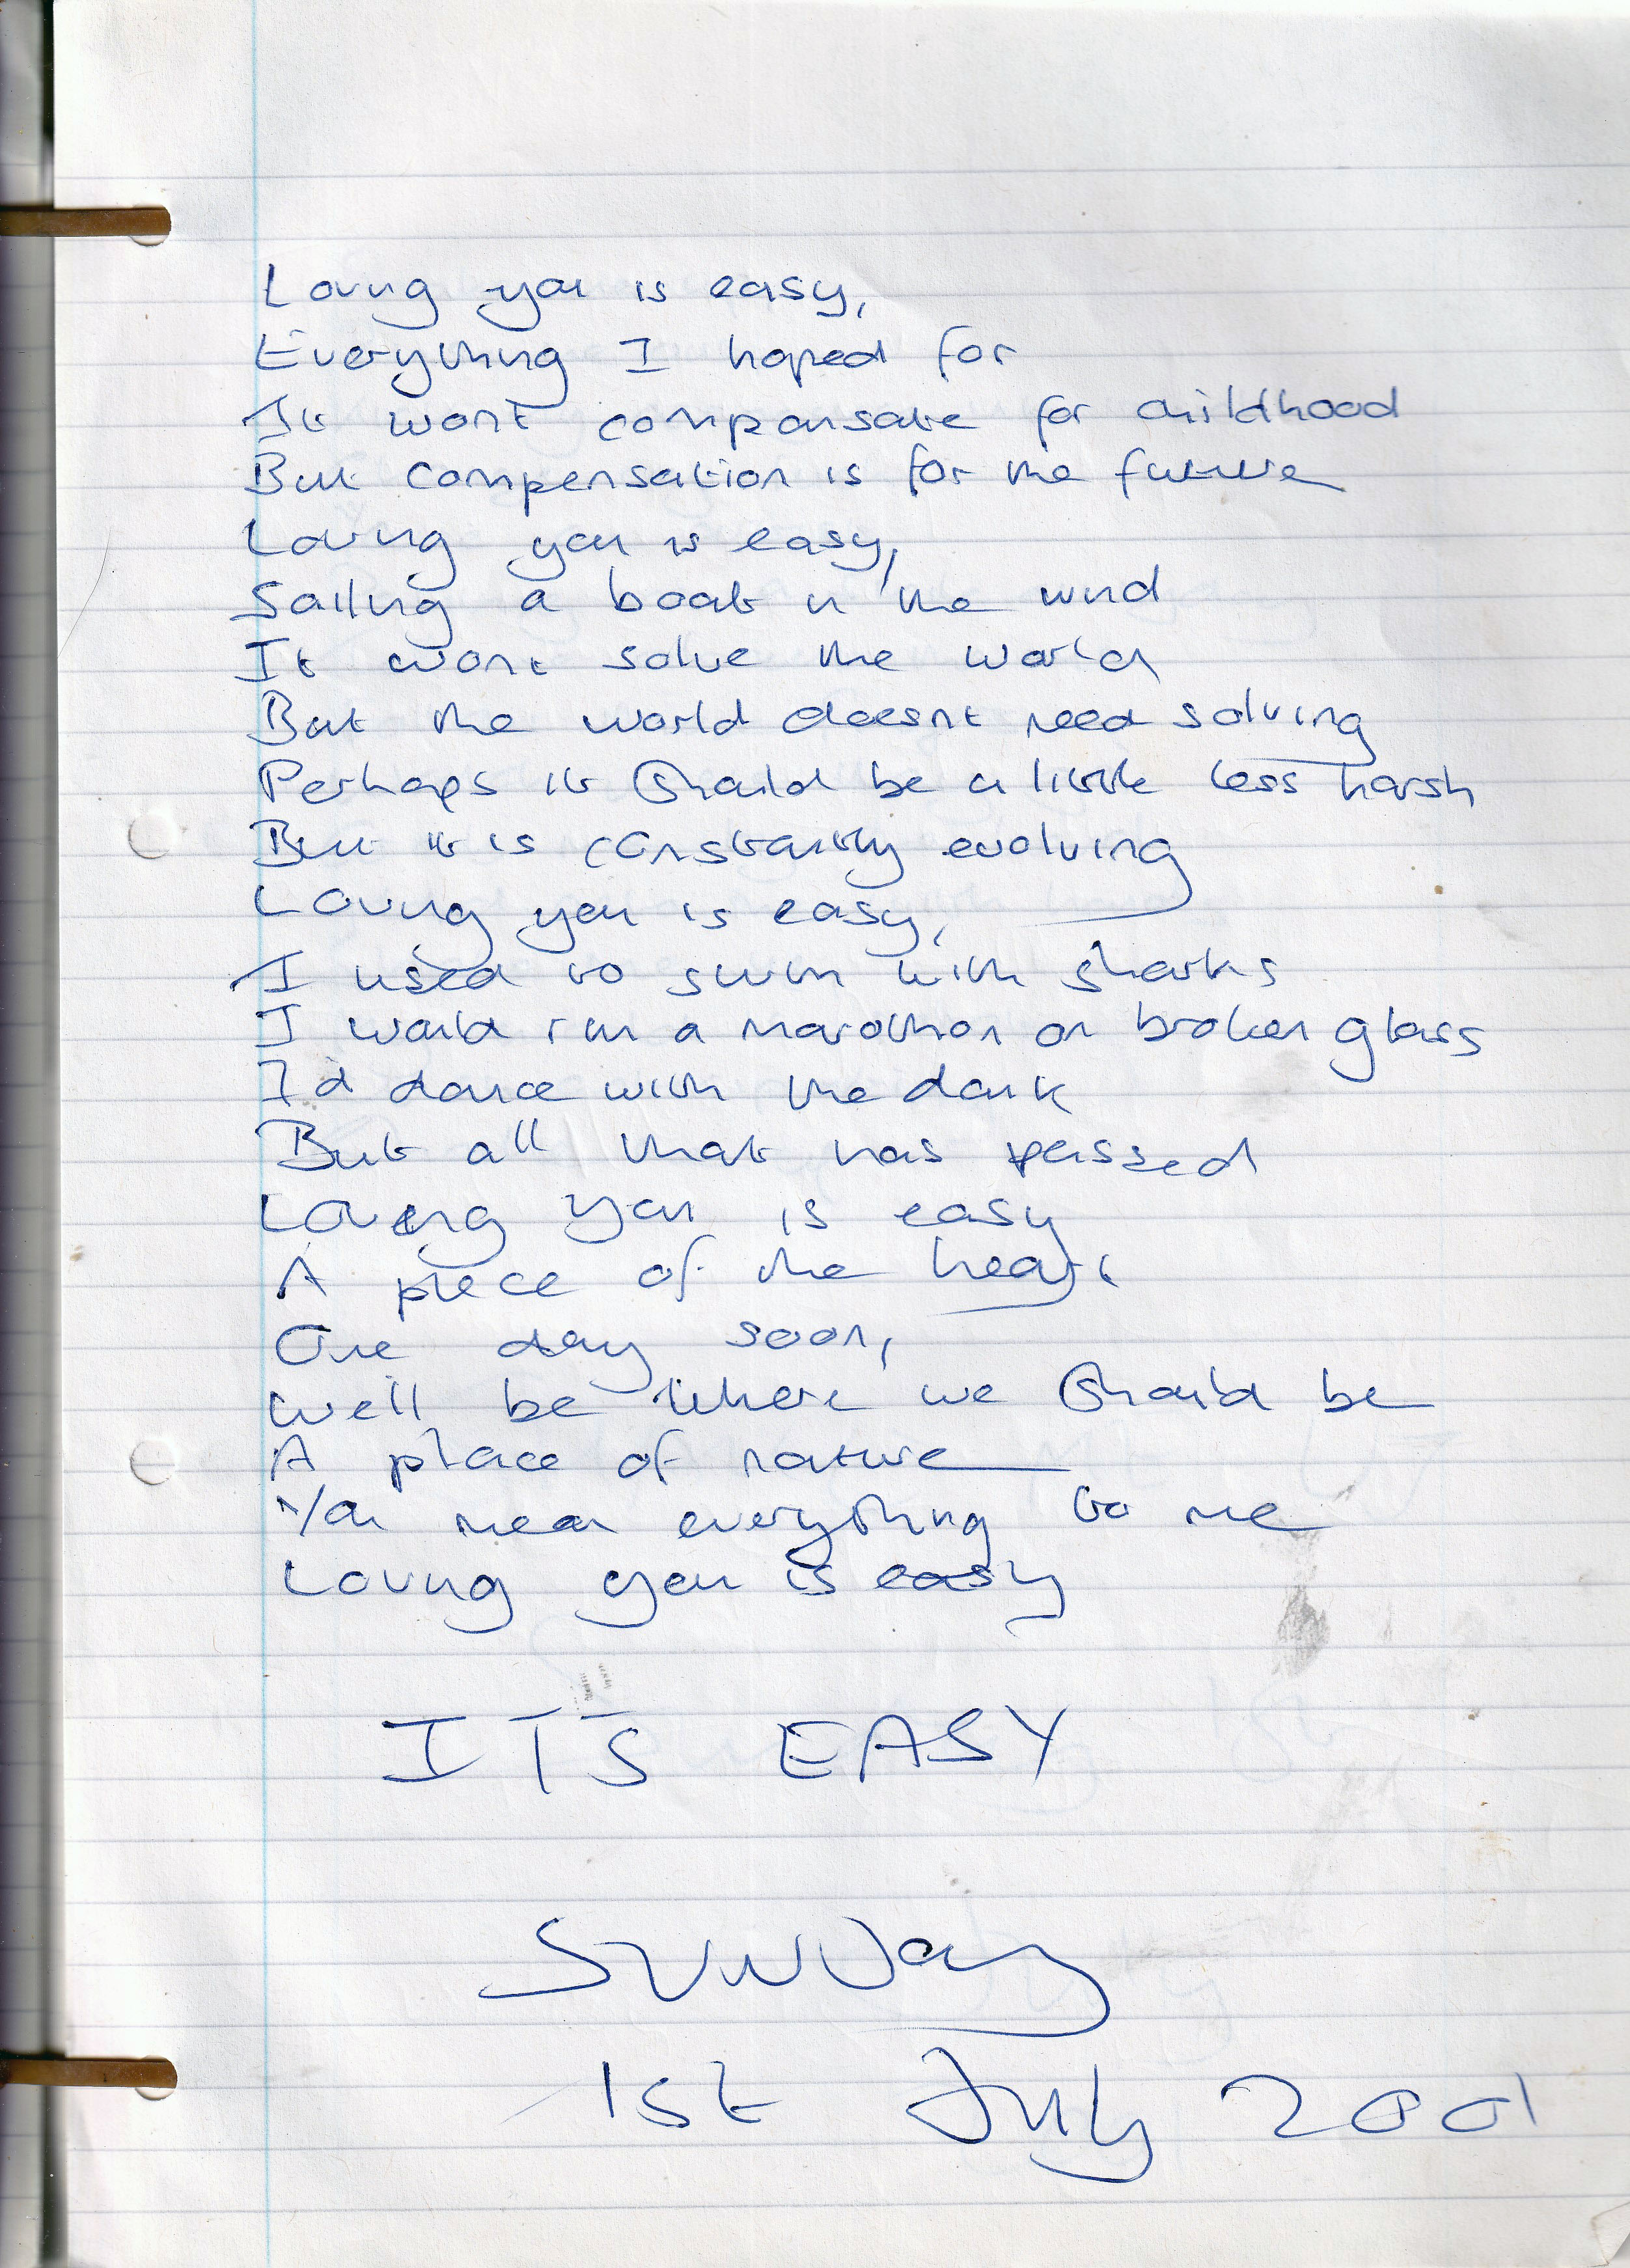 Loving you is easy,
Everything I hoped for
It wont compansate for childhood
But compensation is for the future
Loving you is easy,
Sailing a boat in the wind
It wont solve the world
But the world doesnt need solving
Perhaps it should be a little less harsh
But it is constantly evolving
Loving you is easy,
I used to swim with sharks
I would run a marathon on broken glass
I'd dance with the dark
But all that has passed
Loving you is easy
A piece of the heart
One day soon,
We'll be where we should be
A place of nature
You mean everything to me
Loving you is easy
ITS EASY
SUNDay
1st July 2001